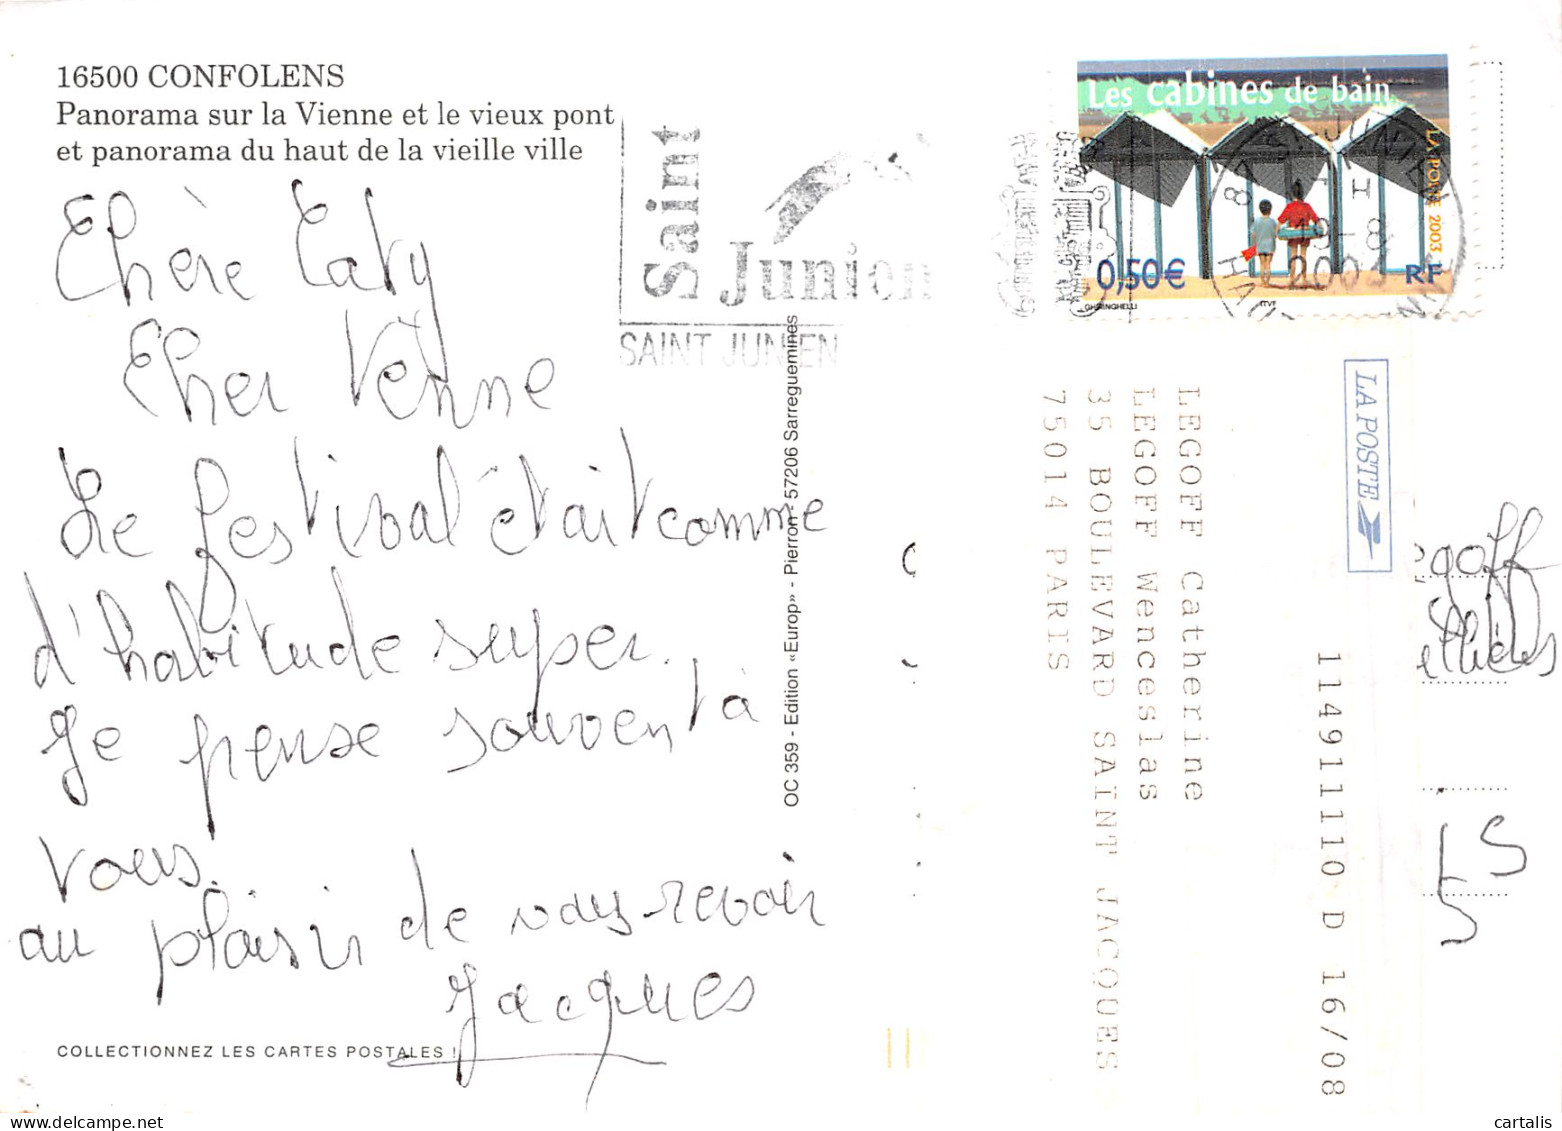 16500 CONFOLENS
Panorama sur la Vienne et le vieux pont
et panorama du haut de la vieille ville
Chère Caty
Cher Venne
Le festival était comme
d'habitude super.
Je pense souvent à
vous.
au plaisir de vous revoir
Jacques
COLLECTIONNEZ LES CARTES POSTALES !
OC 359 - Edition «Europ» - Pierron - 57206 Sarreguemines
Saint
Junien
SAINT JUNIEN
Les cabines de bain
LA POSTE 2003
0,50€
RF
GHIRINGHELLI
ITVF
87 ST JUNIEN
19-8
2003
LA POSTE
LEGOFF Catherine
LEGOFF Wenceslas
35 BOULEVARD SAINT JACQUES
75014 PARIS
114911110 D 16/08
egoff
LS
S
cartalis